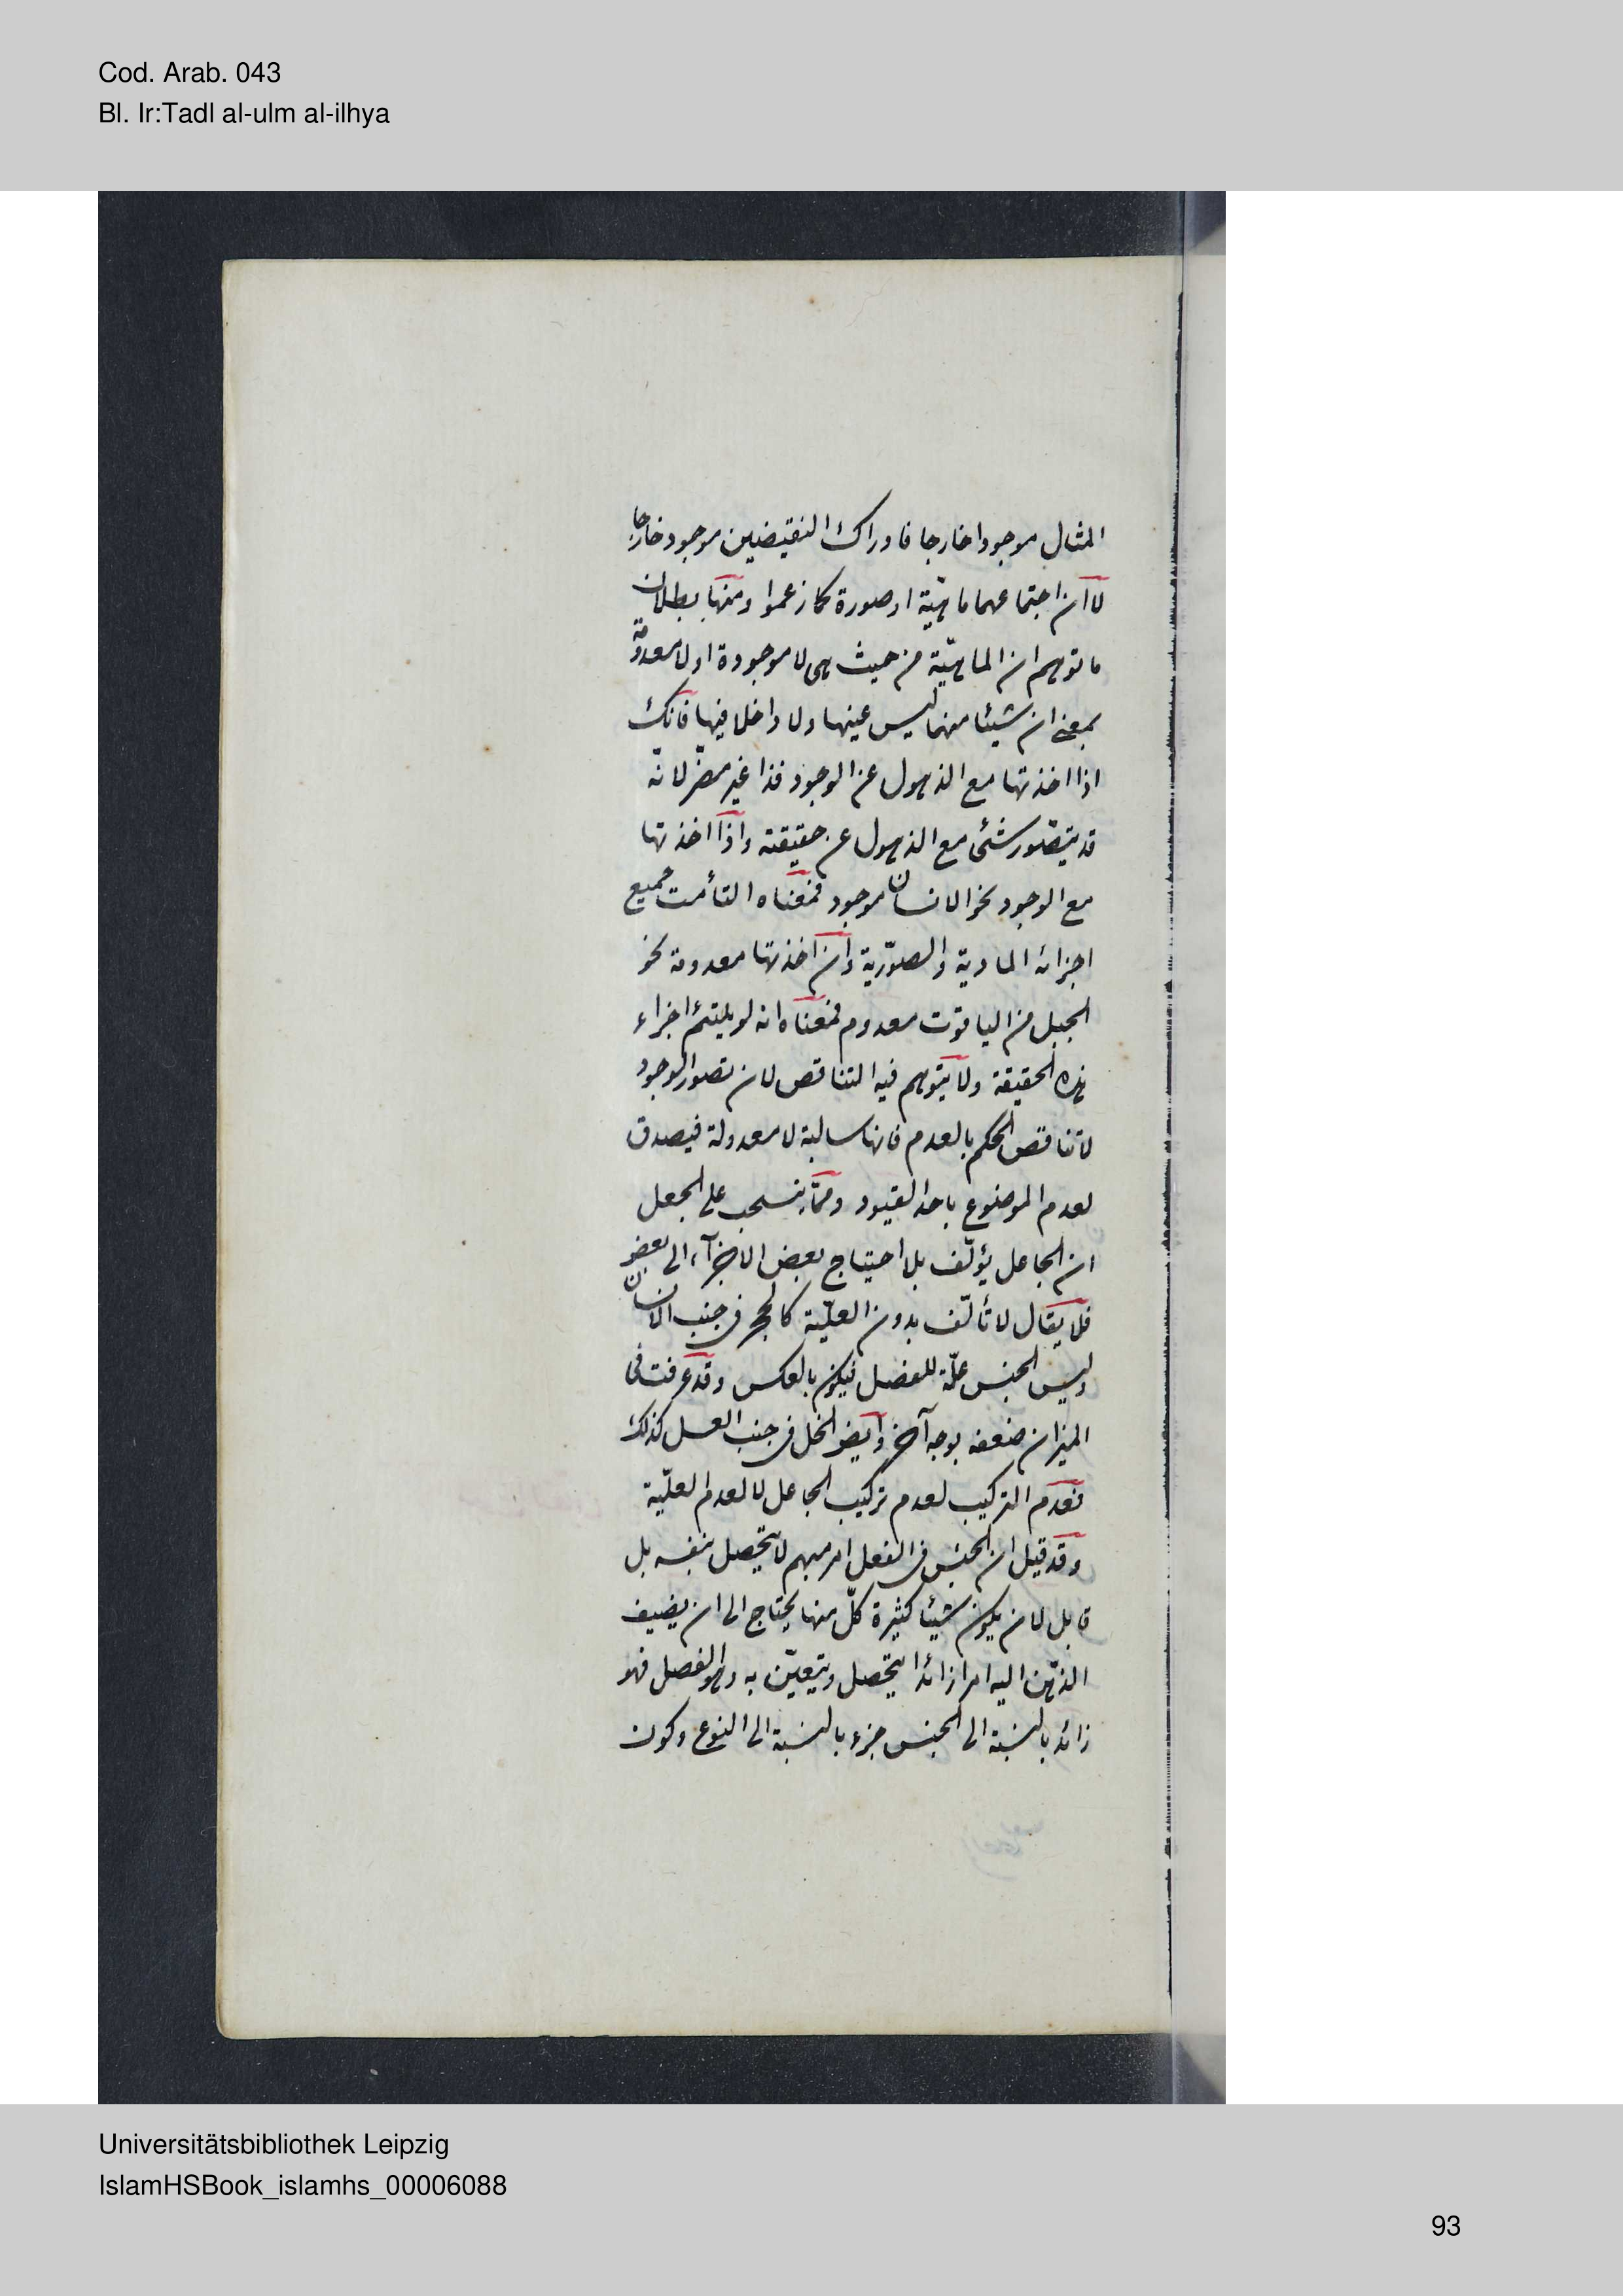 Cod. Arab. 043
Bl. Ir:Tadl al-ulm al-ilhya
المثال موجودا خارجا فادراك النقيضين موجود خارجا
لا ان اجتماعهما ماهيّة او صورة كما زعموا ومنها بطلان
ما توهم ان الماهيّة من حيث هى لا موجودة او لا معدومة
بمعنى ان شيئا منهما ليس عينها ولا داخلا فيها فانك
اذا اخذتها مع الذهول عن الوجود فذا غير مضرّ لانّه
قد يتصّور شئ مع الذهول عن حقيقته واذا اخذتها
مع الوجود نحو الانسان موجود فمعناه التأمت جميع
اجزائه المادية والصوّرية وان اخذتها معدومة نحو
الجبل من الياقوت معدوم فمعناه انه لو يلتئم اجزاء
هذه الحقيقة ولا يتوهم فيه التناقص لان تصور الوجود
لا تناقص الحكم بالعدم فانها سالبة لا معدولة فيصدق
لعدم الموضوع باحد القيود وممّا ينسحب على الجعل
ان الجاعل يؤلّف بلا احتياج بعض الاجزآء الى بعض
فلا يقال لا تألّف بدون العليّة كالحجر فى جنب الانسان
وليس الجنس علّة للفصل فيكون بالعكس وقد عرفت فى
الميزان ضعفه بوجه آخر وايضا الخل فى جنب العسل كذلك
فعدم التركيب لعدم تركيب الجاعل لا لعدم العلّية
وقد قيل ان الجنس فى الفعل امر مبهم لا يتحصل بنفسه بل
قابل لان يكون شيئا كثيرة كلّ منها يحتاج الى ان يضيف
الذهن اليه امرا زائدا يتحصل ويتعيّن به وهو الفصل فهو
زائد بالنسبة الى الجنس جزء بالنسبة الى النوع وكون
Universitätsbibliothek Leipzig
IslamHSBook_islamhs_00006088
93